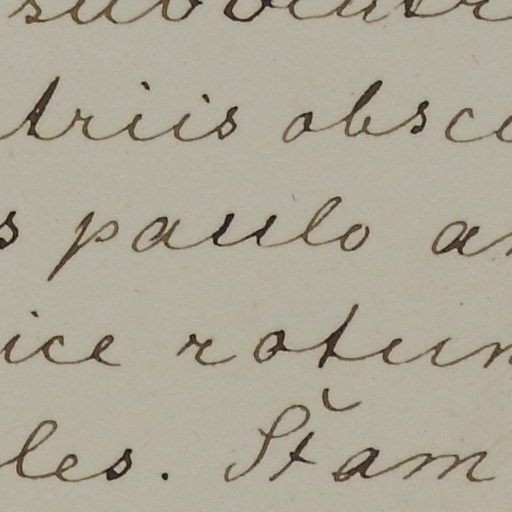 triis obsc
s paulo a
ice rotun
les. Stam